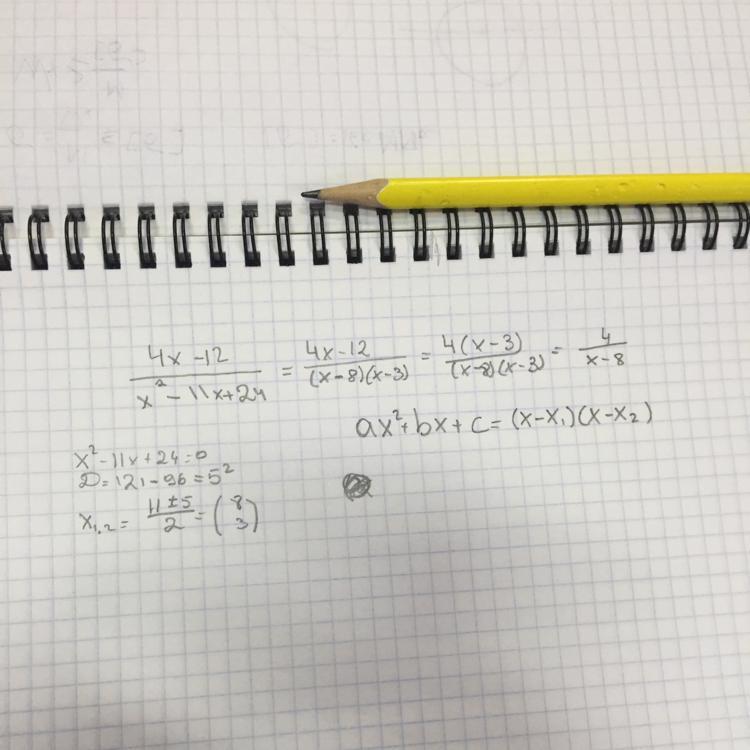 4x-12 / x²-11x+24 = 4x-12 / (x-8)(x-3) = 4(x-3) / (x-8)(x-3) = 4 / x-8
ax²+bx+c=(x-x₁)(x-x₂)
x²-11x+24=0
D=121-96=5²
x₁,₂= 11±5 / 2 = (8 3)